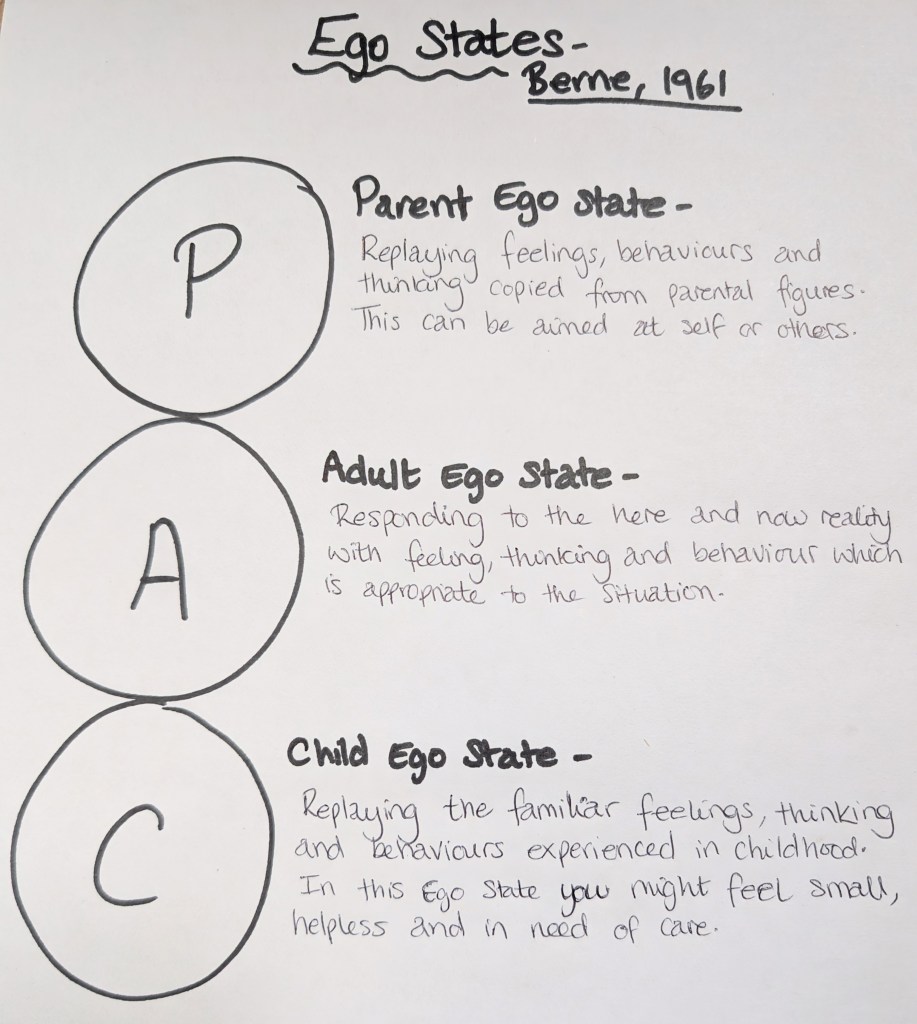 Ego States-
Berne, 1961
P
Parent Ego State -
Replaying feelings, behaviours and
thinking copied from parental figures.
This can be aimed at self or others.
A
Adult Ego State -
Responding to the here and now reality
with feeling, thinking and behaviour which
is appropriate to the situation.
C
Child Ego State -
Replaying the familiar feelings, thinking
and behaviours experienced in childhood.
In this Ego State you might feel small,
helpless and in need of care.